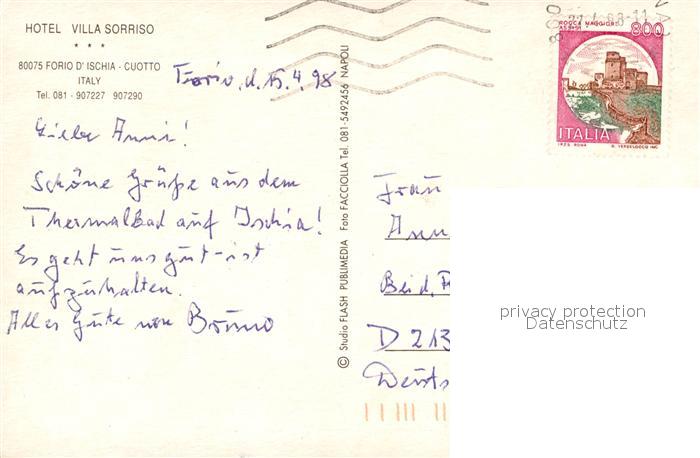 HOTEL VILLA SORRISO
* * *
80075 FORIO D' ISCHIA - CUOTTO
ITALY
Tel. 081 - 907227 907290
Forio, d. 15.4.98
Liebe Anni!
Schöne Grüße aus dem
Thermalbad auf Ischia!
Es geht uns gut - ist
auszuhalten.
Alles Gute von Bruno
© Studio FLASH PUBLIMEDIA Foto FACCIOLLA Tel. 081-5492456 NAPOLI
ROCCA MAGGIORE
ASSISI
800
ITALIA
I.P.Z.S. ROMA
Frau
Ann
Beid. F
D 213
Deuts
privacy protection
Datenschutz